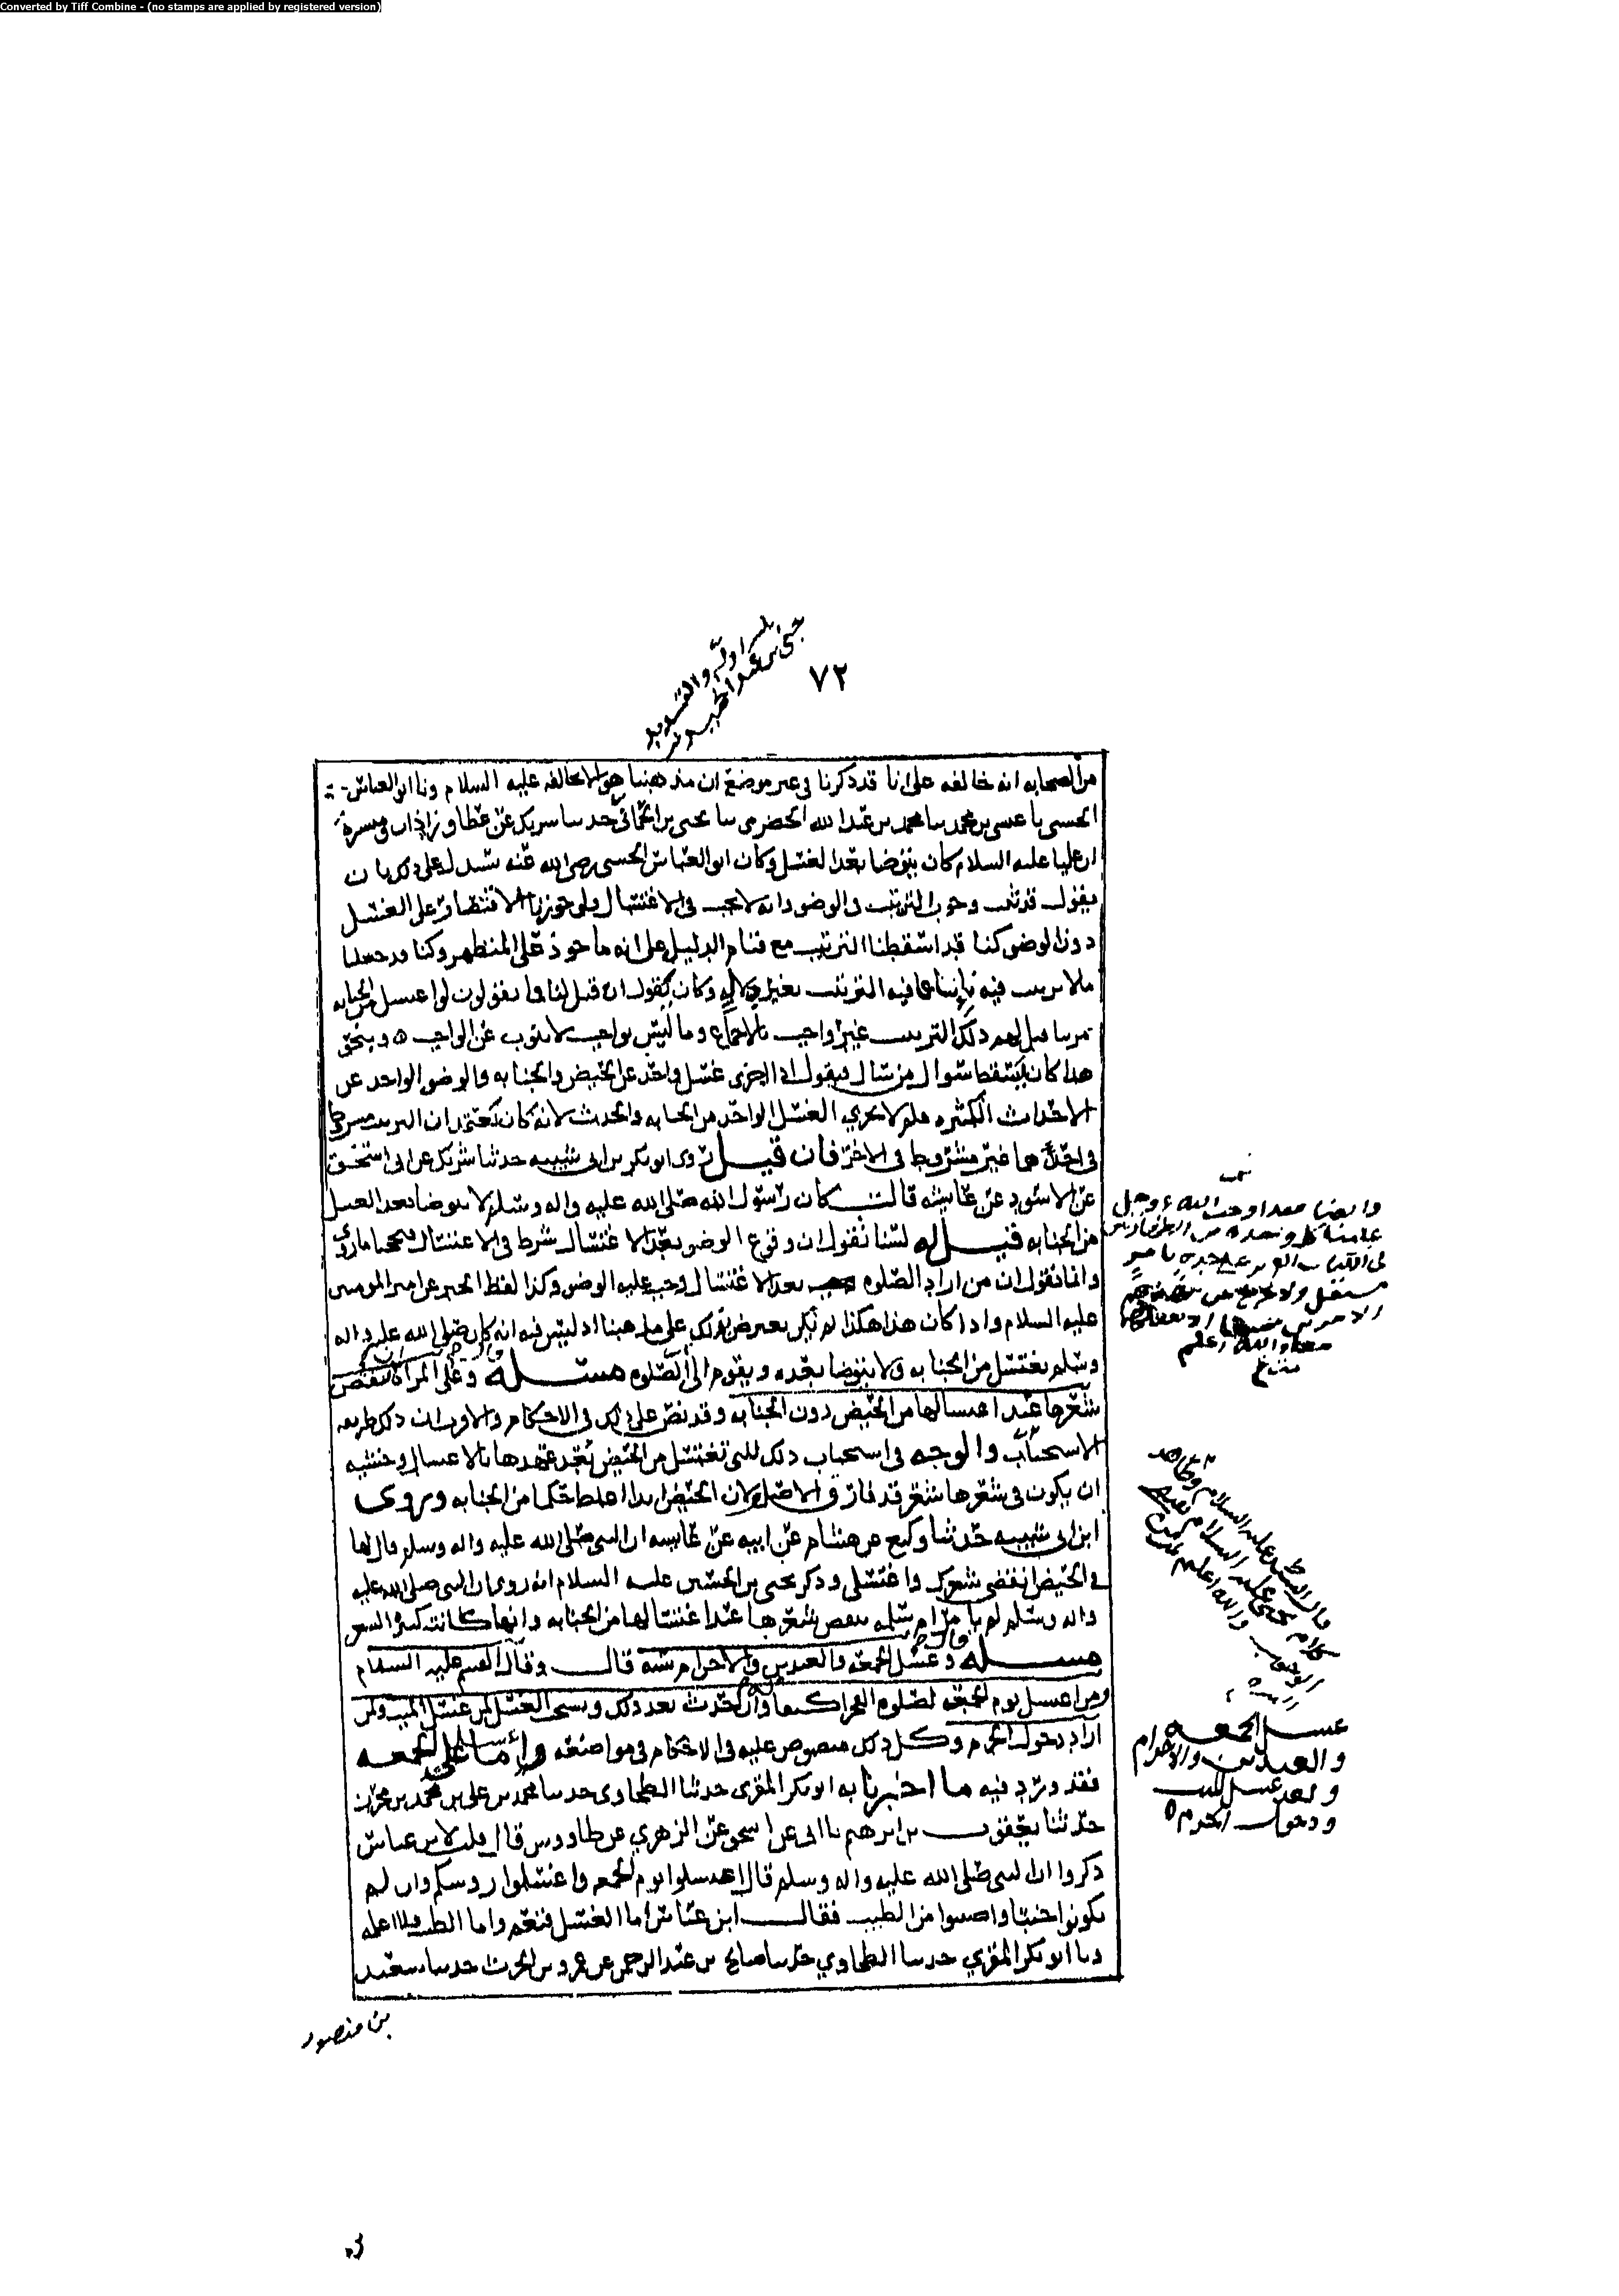 Converted by Tiff Combine - (no stamps are applied by registered version)
٧٢
من الصحابه انه خالفه على انا قد ذكرنا في غير موضع ان مذهبنا هو الا نخالفه عليه السلام ونا ابو العباس
الحسني نا عيسى بن محمد نا محمد بن عبد الله الحضرمي نا يحيى بن الحماني حدثنا شريك عن عطا وزاذان وميسرة
ان عليا عليه السلام كان يتوضا بعد الغسل وكان ابو العباس الحسني رضي الله عنه يستدل على ذلك بان
يقول قد ثبت وجوب الترتيب في الوضو وانه لا يجب في الاغتسال فلو جوزنا الاقتصار على الغسل
دون الوضو كنا قد اسقطنا الترتيب مع قيام الدليل على انه ماخوذ على المتطهر وكنا قد جعلنا
ما لا ترتيب فيه نايبا عما فيه الترتيب بغير دلاله وكان يقول ان قيل لنا فما تقولون لو اغتسل من الجنابه
مرتبا قيل لهم ذلك الترتيب غير واجب بالاجماع وما ليس بواجب لا ينوب عن الواجب ه وبنحو
هذا كان يسقط سوال من سال فيقول اذا اجزى غسل واحد عن الحيض والجنابه والوضو الواحد عن
الاحداث الكثيره فلم لا يجزي الغسل الواحد من الجنابه والحدث لانه كان يعتمد ان الترتيب مشروط
في احدهما غير مشروط في الاخر فان قيل روى ابو بكر بن ابي شيبه حدثنا شريك عن ابي اسحق
عن الاسود عن عايشه قالت كان رسول الله صلى الله عليه واله وسلم لا يتوضا بعد الغسل
من الجنابه قيل له لسنا نقول ان وقوع الوضو بعد الاغتسال شرط في الاغتسال فيحجنا ما روي
وانما نقول ان من اراد الصلوه بعد الاغتسال وجب عليه الوضو وكذا لفظ الخبر عن امير المومنين
عليه السلام واذا كان هذا هكذا لم يكن بعترض بذلك على مذهبنا اذ ليس فيه انه كان صلى الله عليه واله
وسلم يغتسل من الجنابه ولا يتوضا بعده ويقوم الى الصلوه مسئله وعلى المراة ان تنقض
شعرها عند اغتسالها من الحيض دون الجنابه وقد نص على ذلك في الاحكام والاقرب ان ذلك طريقه
الاستحباب والوجه في استحباب ذلك للتي تغتسل من الحيض بعد عهدها بالاغتسال وخشيه
ان يكون في شعرها شعر قد فارق الاصل ولان الحيض ابدا اغلظ حكما من الجنابه وروى
ابن ابي شيبه حدثنا وكيع عن هشام عن ابيه عن عايشه ان النبي صلى الله عليه واله وسلم قال لها
في الحيض انقضي شعرك واغتسلي وذكر يحيى بن الحسين عليه السلام انه روى ان النبي صلى الله عليه
واله وسلم لم يامر ام سلمه بنقض شعرها عند اغتسالها من الجنابه وانها كانت كثيرة الشعر
مسئله وغسل الجمعه والعيدين والاحرام سنه قال وقال القسم عليه السلام
ومن اغتسل يوم الجمعه لصلوه الفجر اكتفا وان احدث بعد ذلك ويستحب الغسل لمن غسل الميت ولمن
اراد دخول الحرم وكل ذلك منصوص عليه في الاحكام في مواضعه واما غسل الجمعه
فقد ورد فيه ما اخبرنا به ابو بكر المقري حدثنا الطحاوي حدثنا محمد بن علي بن محمد بن محرز
حدثنا يعقوب بن ابرهيم نا ابي عن اسحق عن الزهري عن طاووس قال قلت لابن عباس
ذكروا ان النبي صلى الله عليه واله وسلم قال اغتسلوا يوم الجمعه واغسلوا روسكم وان لم
تكونوا جنبا واصيبوا من الطيب فقال ابن عباس اما الغسل فنعم واما الطيب فلا اعلمه
ونا ابو بكر المقري حدثنا الطحاوي حدثنا صالح بن عبد الرحمن عن عمرو بن الحرث حدثنا سعيد
بن منصور
غسل الجمعه
والعيدين والاحرام
وبعد غسل الميت
ودخول الحرم ه